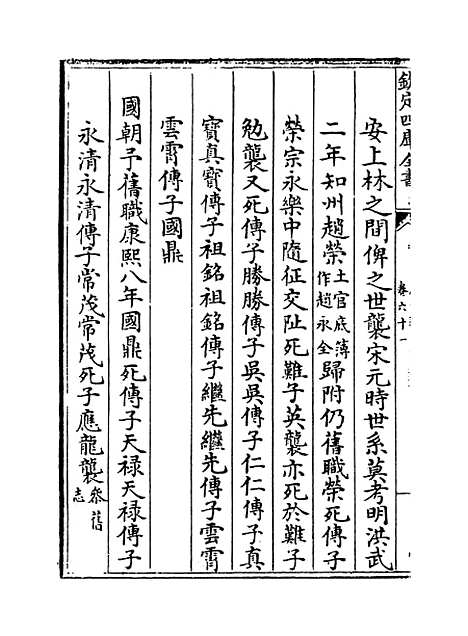 欽定四庫全書
卷六十一
安上林之間俾之世襲宋元時世系莫考明洪武
二年知州趙榮土官底簿作趙永全歸附仍舊職榮死傳子
榮宗永樂中隨征交阯死難子英襲亦死於難子
勉襲又死傳子勝勝傳子吳吳傳子仁仁傳子真
寳真寳傳子祖銘祖銘傳子繼先繼先傳子雲霄
雲霄傳子國鼎
國朝予舊職康熙八年國鼎死傳子天禄天禄傳子
永清永清傳子常茂常茂死子應龍襲叅舊志